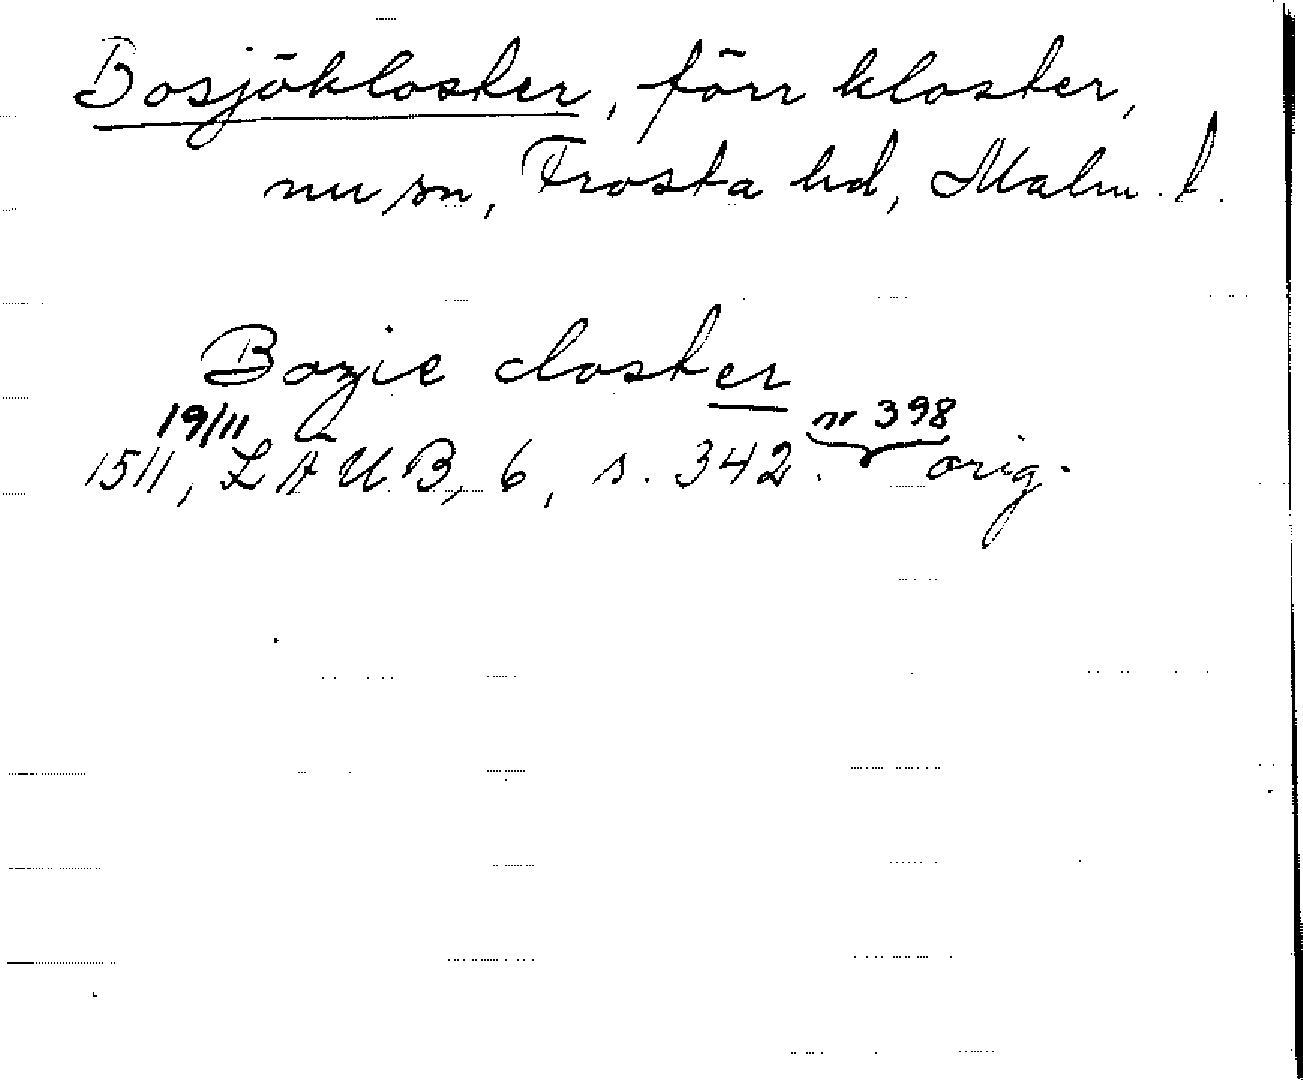 Bosjökloster, förr kloster,
nu sn, Frosta hd, Malm. l.
Bozie closter
19/11 nr 398
1511, LÄUB, 6, s. 342. orig.